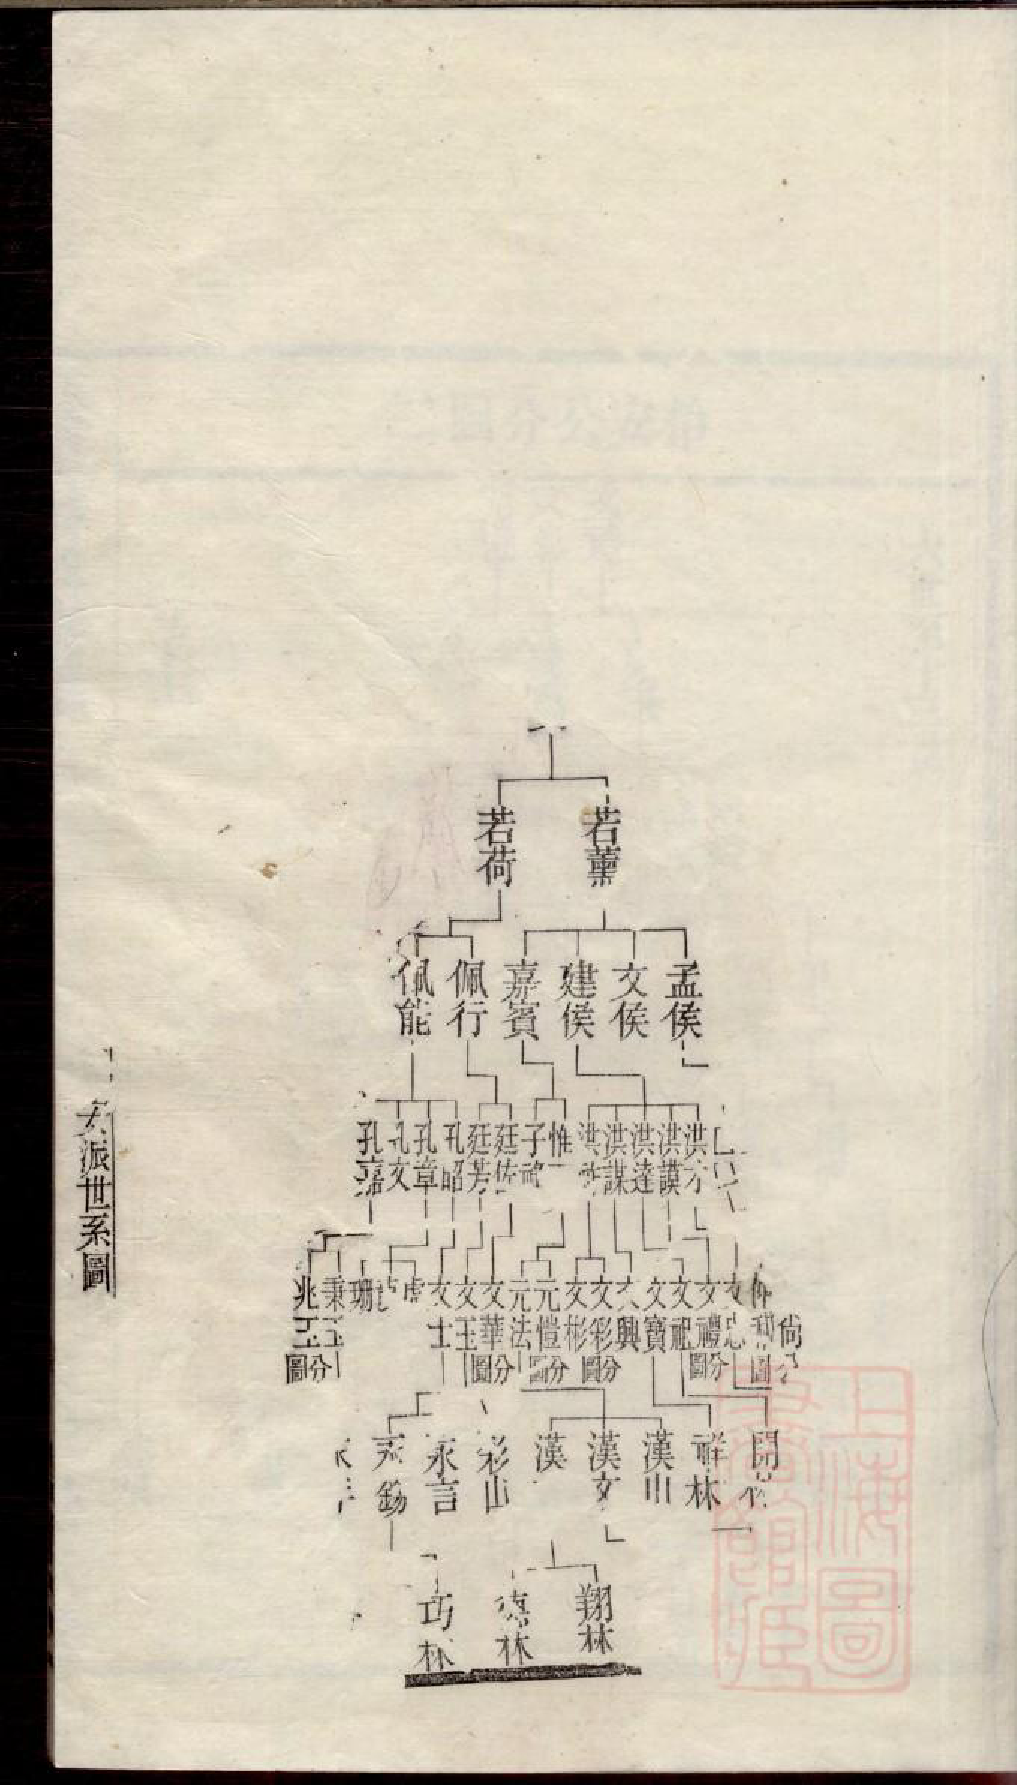 若薰
若荷
孟侯
文侯
建侯
嘉賓
佩行
佩能
洪
洪謨
洪達
洪謀
洪
惟
子
廷佐
廷芳
孔昭
孔章
孔文
孔嘉
尙
文
文禮
分圖
文祖
文寶
興
文彩
分圖
文彬
元愷
分圖
元法
文華
分圖
文玉
文士
虎
珊
秉玉
兆玉
分圖
開
祥林
漢山
漢文
漢
彩山
永言
永錫
翔林
德林
巧林
派世系圖
上海圖書館藏